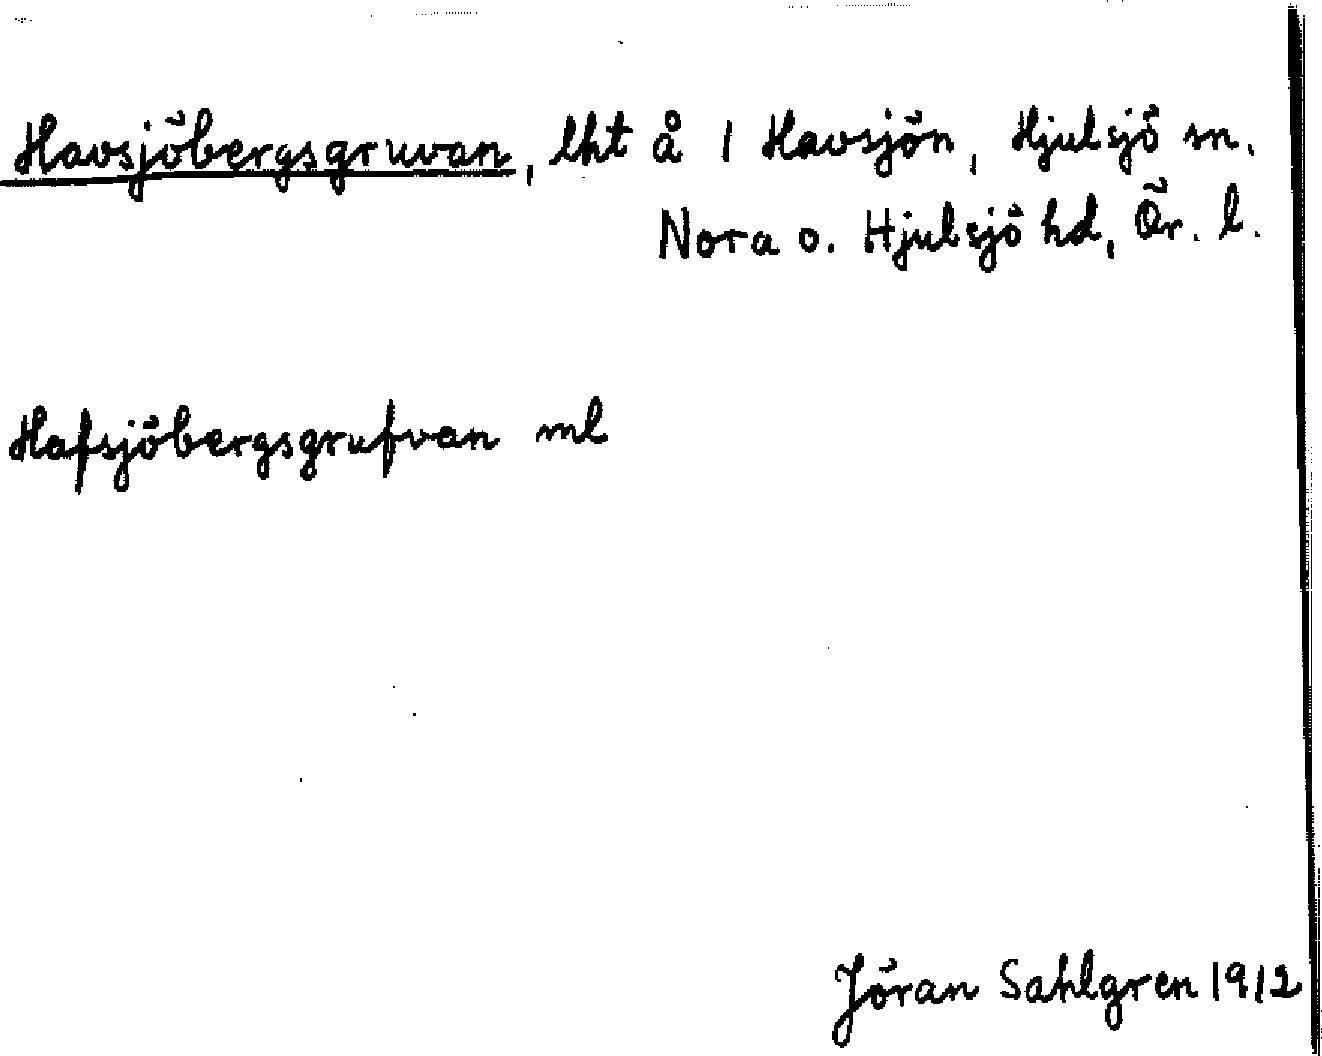 Havsjöbergsgruvan, lht å 1 Havsjön, Hjulsjö sn.
Nora o. Hjulsjö hd, Ör. l.
Hafsjöbergsgrufvan ml
Jöran Sahlgren 1912